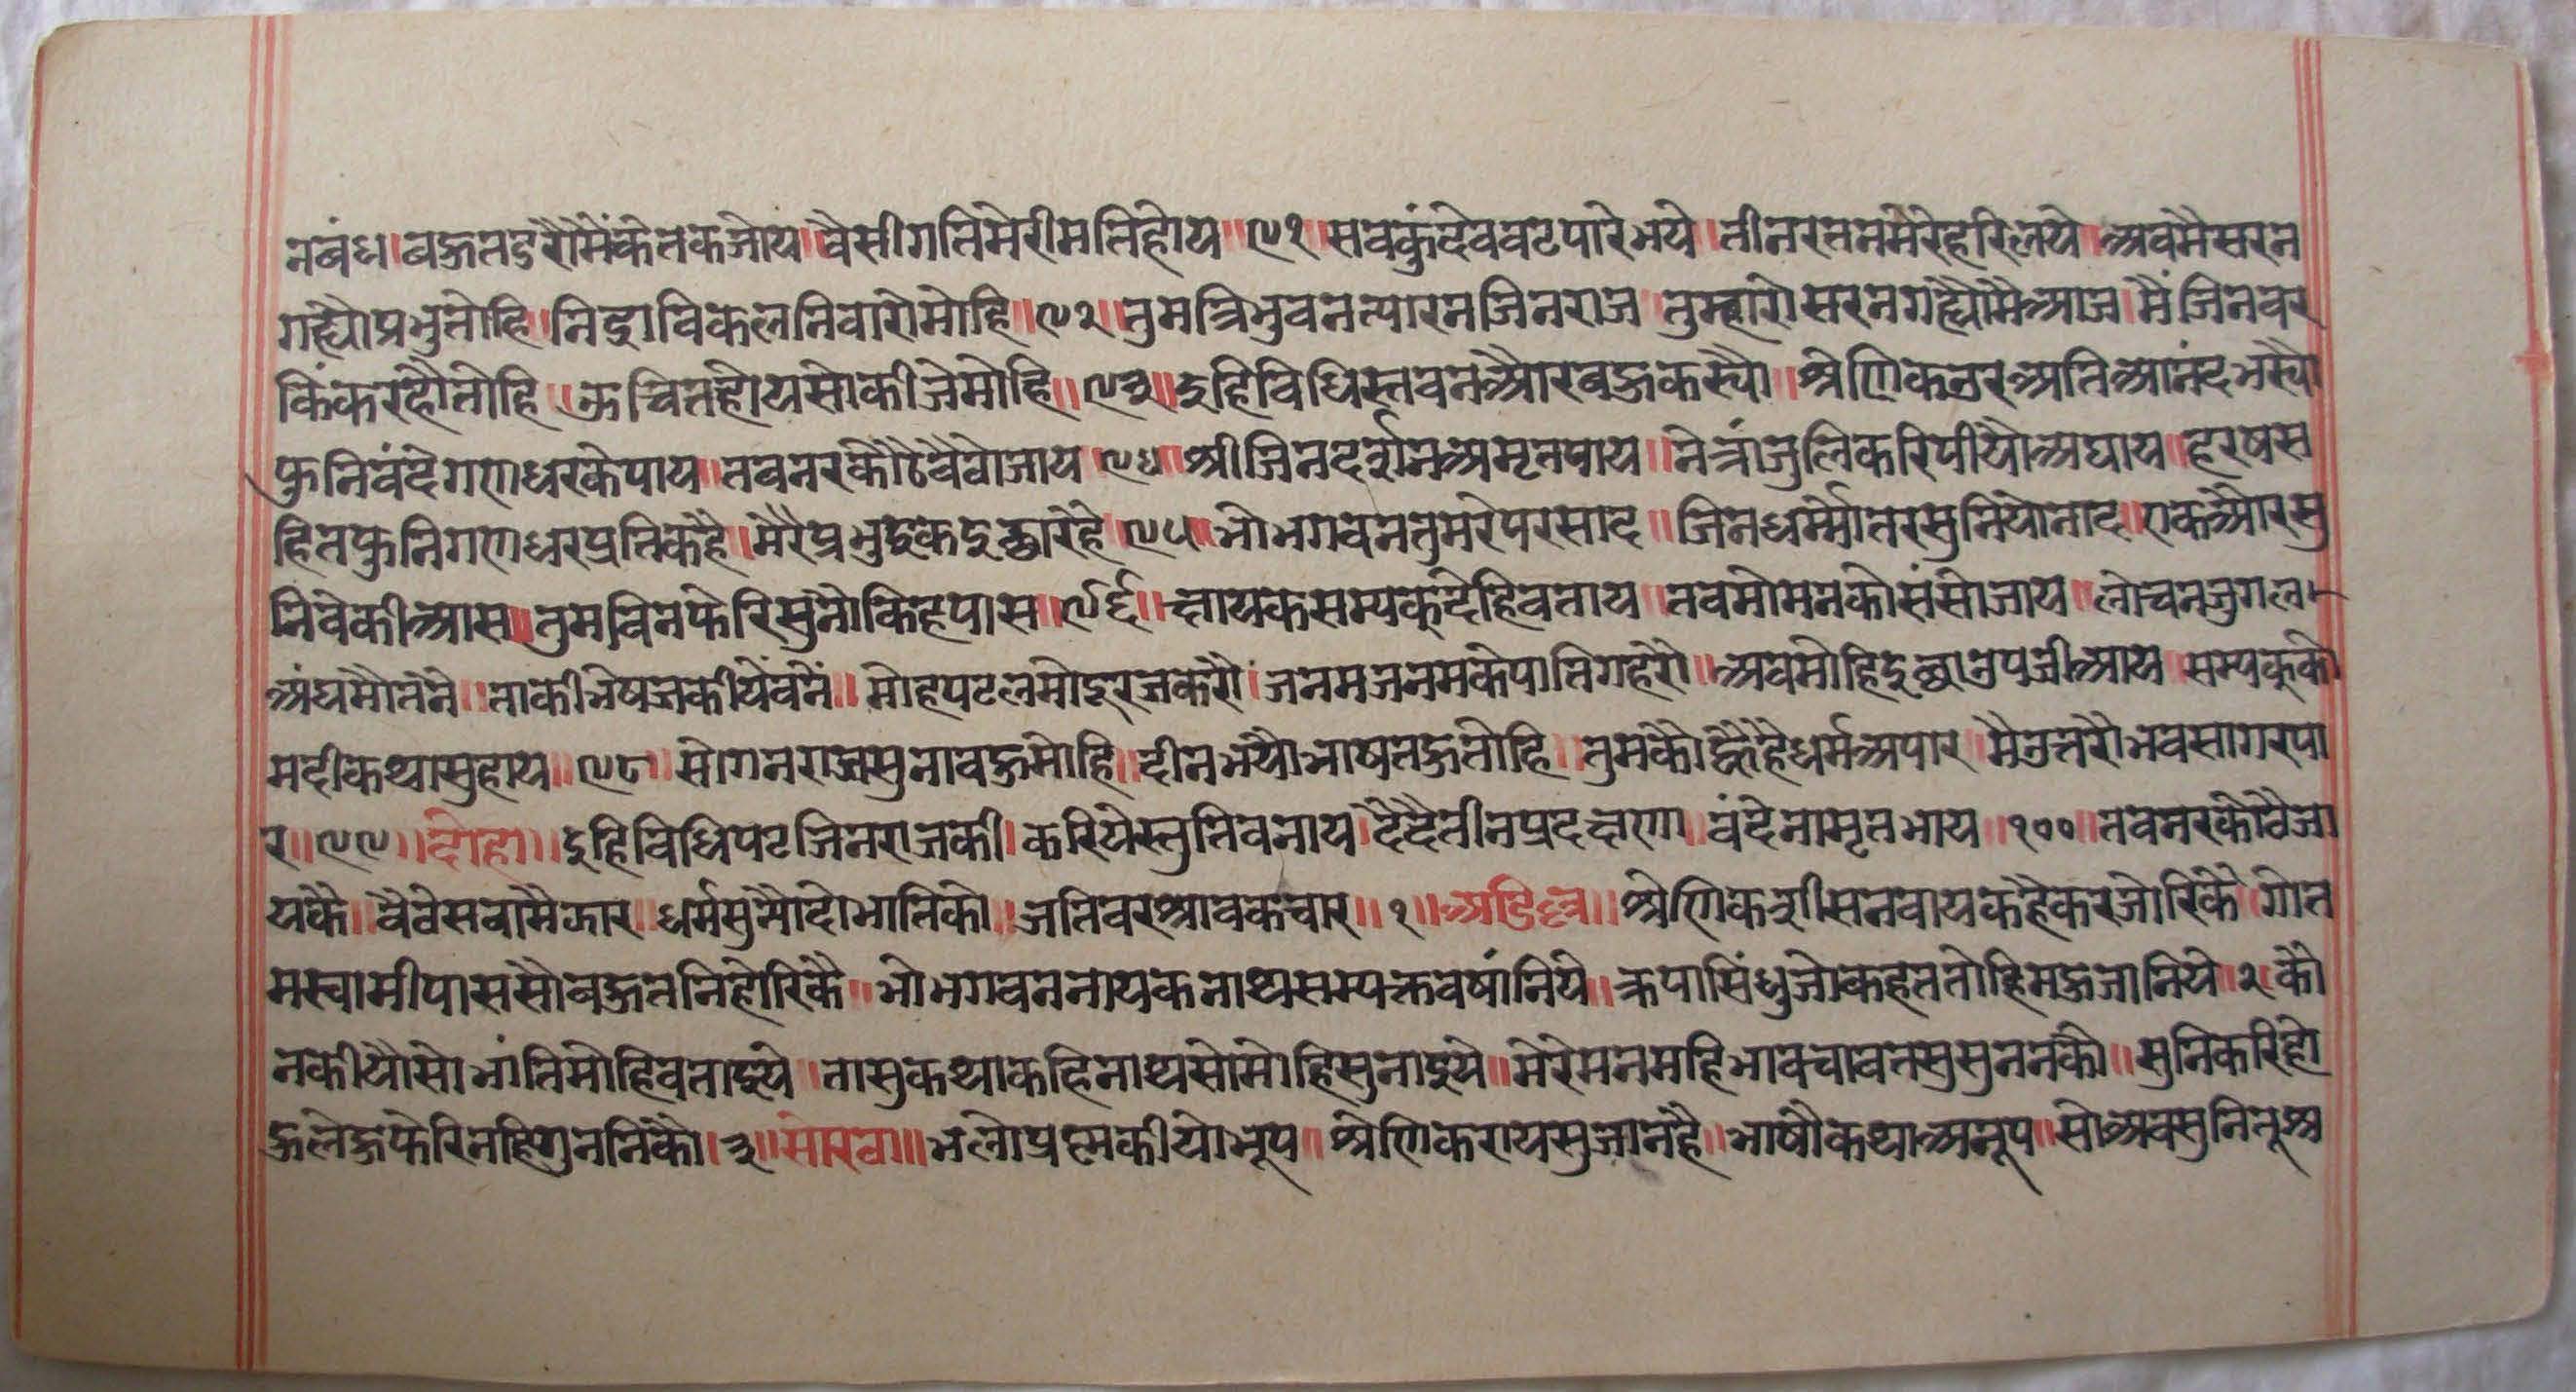 नबंध॥बहुतदुरौमेंकेतकजोय॥वैसीगतिमेरीमतिहोय॥९१॥सवकुंदेववटपारेभये॥तीनरतनमेरेहरिलये॥अवमैसरन
गह्यौप्रभुतोहि॥निद्राविकलनिवारोमोहि॥९२॥तुमत्रिभुवनत्यारनजिनराज॥तुम्हारोसरनगह्यौमैआज॥मैंजिनवर
किंकरहौतोहि॥ऊचितहोयसोकीजेमोहि॥९३॥इहिविधिस्तवनऔरबहुकस्यौ॥श्रेणिकउरअतिआनंदभस्यौ
फुनिवंदेगणधरकेपाय॥तवनरकौठैवैवोजाय॥९४॥श्रीजिनदर्शनअमृतपाय॥नेत्रांजुलिकरिपीयौअघाय॥हरषस
हितफुनिगणधरप्रतिकहै॥मेरैप्रभुइकइछारहे॥९५॥भोभगवनतुमरेपरसाद॥जिनधर्मोतरसुनियोनाद॥एकऔरसु
निवेकीआस॥तुमविनफेरिसुनौकिहपास॥९६॥क्षायकसम्यक्देहिवताय॥तवमोमनकोसंसोजाय॥लोचनजुगल
अंधमौतनै॥ताकीभेषजकीयेंवनें॥मोहपटलमोदूरजकरौ॥जनमजनमकेपातिगहरौ॥अवमोहिइछाउपजीआय॥सम्यक्कौ
मदीकथासुहाय॥९८॥सोगनराजसुनावहुमोहि॥दीनभयौभाषतहुतोहि॥तुमकौह्वैहैधर्मअपार॥मैउतरौभवसागरपा
र॥९९॥दोहा॥इहिविधिपटजिनराजकी॥करियेस्तुतिवनाय॥दैदैतीनप्रदक्षणा॥वंदेनामृतभाय॥१००॥तवनरकोवैजा
यकै॥वैवेसवामैकार॥धर्मसुमैदोभातिको॥जतिवरश्रावकचार॥१॥अडिल्ल॥श्रेणिकशीसनवायकहैकरजोरिकै॥गोत
मस्वामीपाससौबहुतनिहोरिकै॥भोभगवननायकनाथसम्यक्तवषांनिये॥क्रपासिंधुजोकहततोहिमहुजानिये॥२॥कौ
नकीयौसोभांतिमोहिवताइये॥तासुकथाकहिनाथसोमोहिसुनाइये॥मेरेमनमहिभावचावतसुसुननकौ॥सुनिकरिहो
हुलेहुफेरिनहिगुननिकौ॥३॥सोरठा॥भलोप्रह्मकीयोभूप॥श्रेणिकरायसुजानहै॥भाषौकथाअनूप॥सोअवसुनितूअ